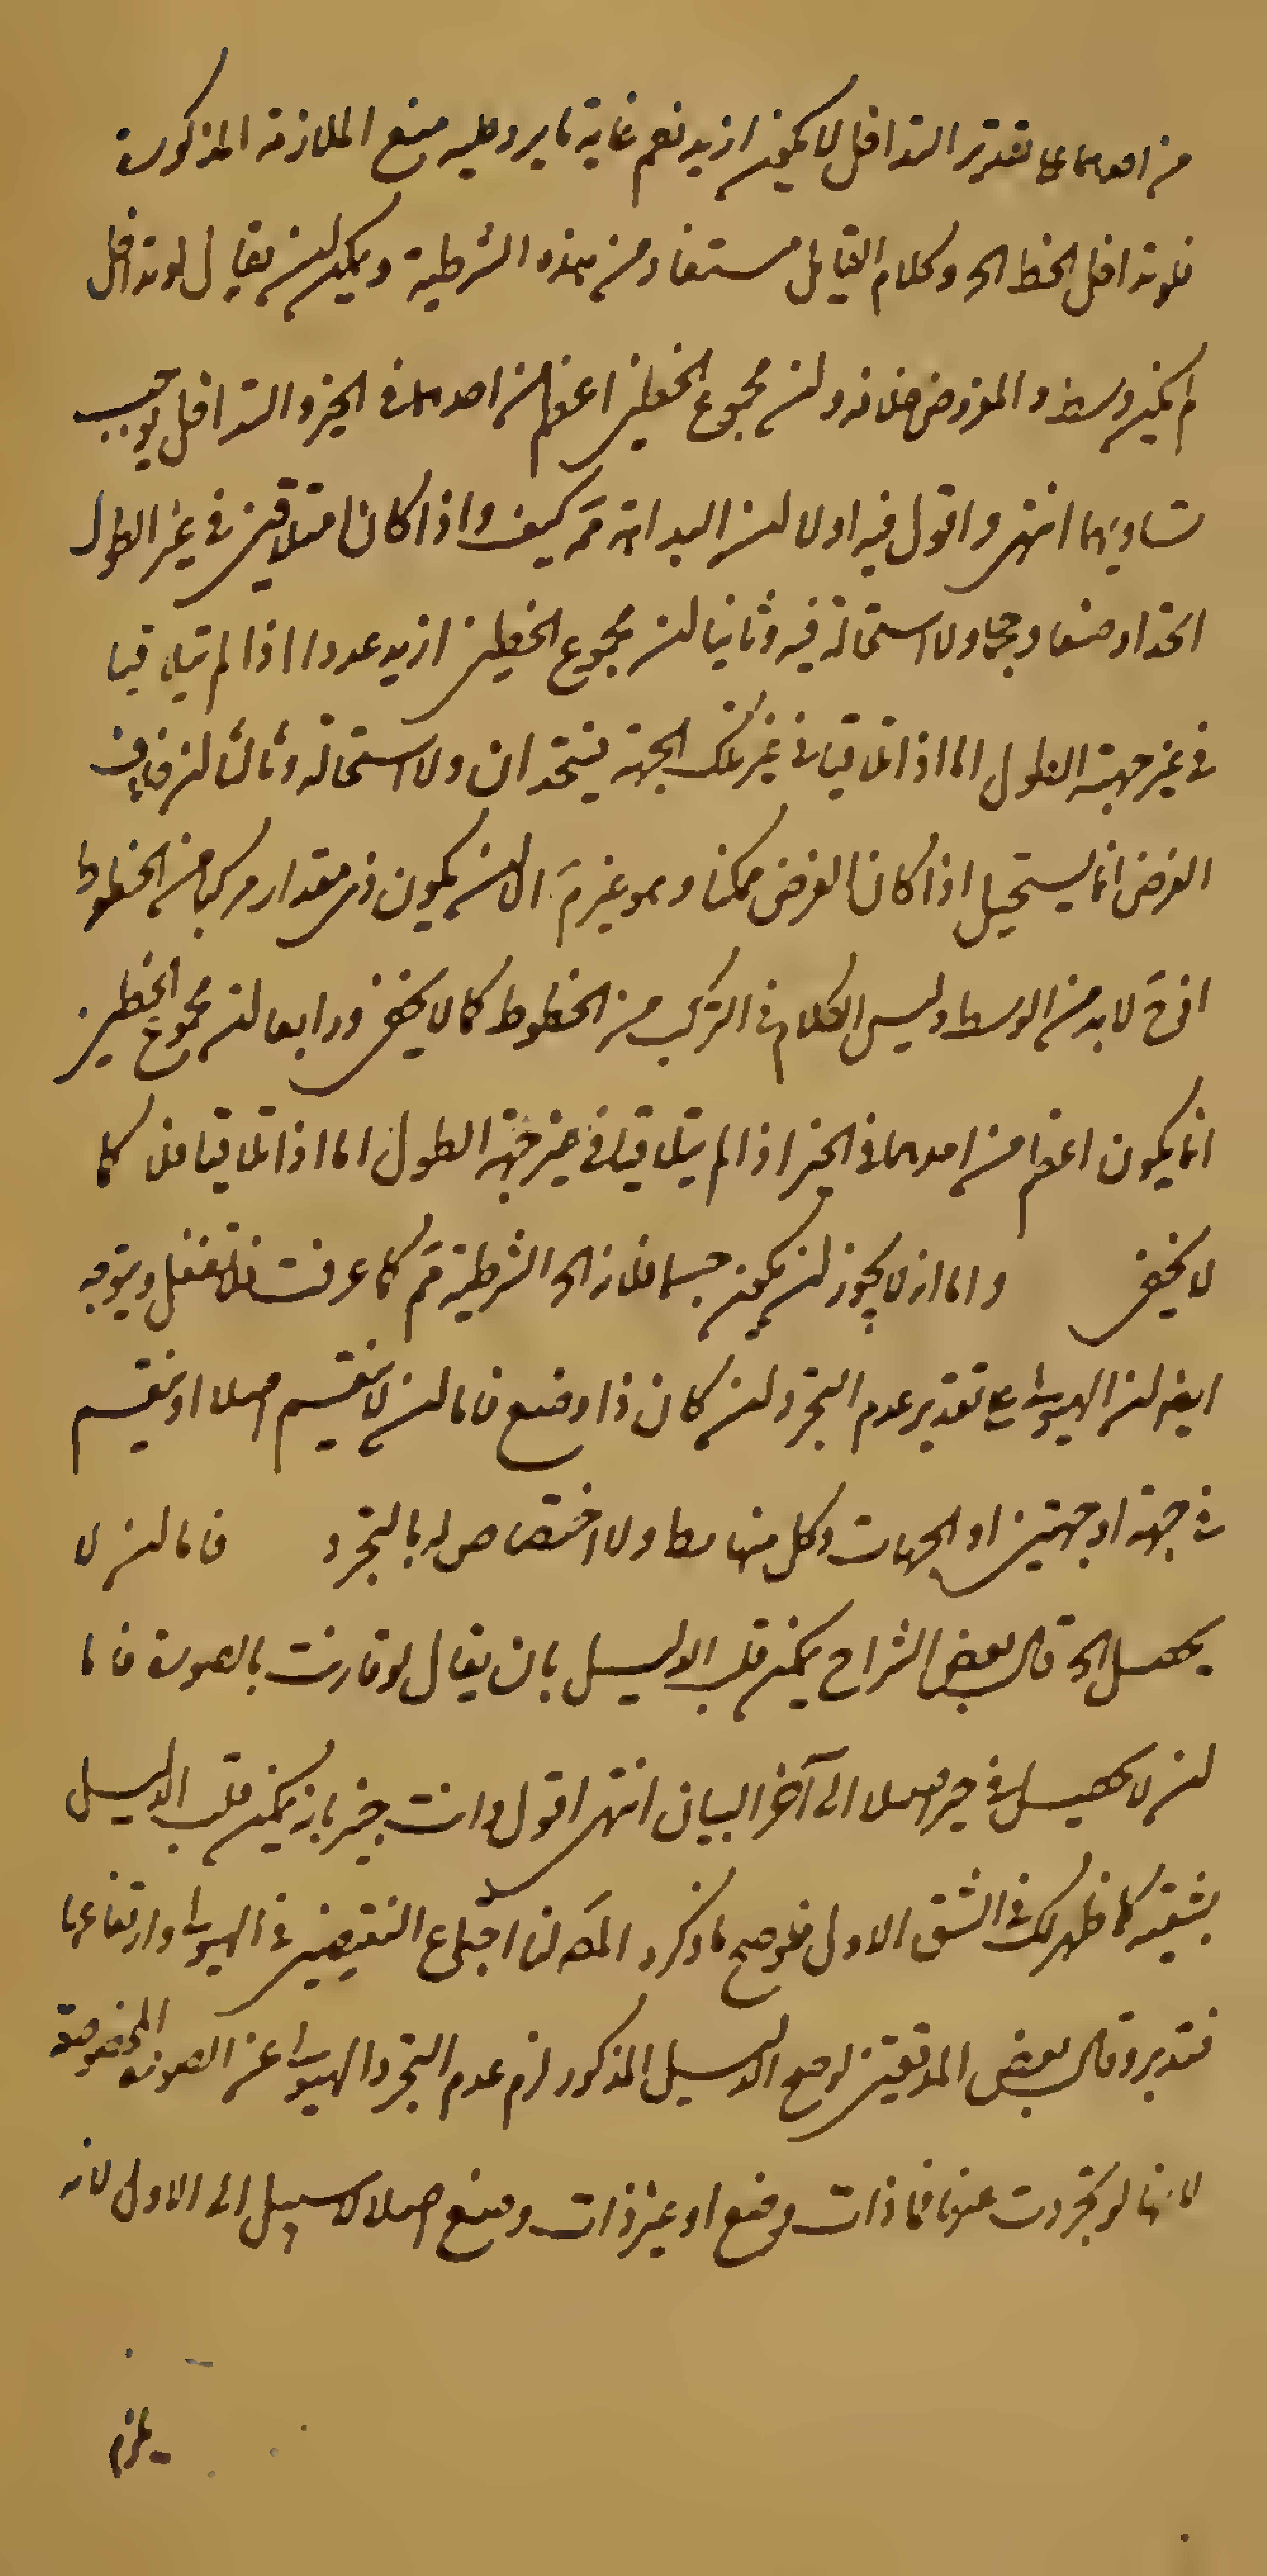 من احدهما على تقدير التداخل لا يكون ازيد نعم غاية ما يرد عليه منع الملازمة المذكورة
فلو تداخل الخط الخ وكلام القايل مستفاد من هذه الشرطية ويمكن ان يقال لو تداخل
لم يكن وسط والمفروض خلافه وان مجموع الخطين اعظم من احدهما في الحيز والتداخل يوجب
تساويهما انتهى واقول فيه اولا ان البداهة مم كيف واذا كانا متلاقيين في غير الطول
اتحدا وضعا وحجما ولا استحالة فيه وثانيا ان مجموع الخطين ازيد عددا اذا لم يتلاقيا
في غير جهة الطول اما اذا تلاقيا في غير تلك الجهة فيتحدان ولا استحالة وثالثا ان خلاف
الفرض انما يستحيل اذا كان الفرض ممكنا وهو غير مم الا ان يكون ذي مقدار مركبا من الخطوط
اذ ح لا بد من الوسط وليس الكلام في التركب من الخطوط كما لا يخفى ورابعا ان مجموع الخطين
انما يكون اعظم من احدهما في الحيز اذا لم يتلاقيا في غير جهة الطول اما اذا تلاقيا فلا كما
لا يخفى واما انه لا يجوز ان يكون جسما فلانه الخ الشرطية مم كما عرفت فلا تغفل ويتوجه
ايضا ان الهيولى على تقدير عدم التجرد ان كان ذا وضع فاما ان لا ينقسم اصلا او ينقسم
في جهة او جهتين او الجهات وكل منها بط ولا اختصاص له بالتجرد فاما ان لا
يحصل الخ قال بعض الشراح يمكن قلب الدليل بان يقال لو قارنت بالصورة فاما
ان لا يحصل في حيز اصلا الى آخر البيان انتهى اقول وانت خبير بانه يمكن قلب الدليل
بشقيه كما ظهر لك في الشق الاول فلو صح ما ذكره المص لزم اجتماع النقيضين في الهيولى وارتفاعهما
فتدبر وقال بعض المدققين لو صح الدليل المذكور لزم عدم التجرد الهيولى عن الصورة المخصوصة
لانها لو تجردت عنها فاما ذات وضع او غير ذات وضع اصلا لا سبيل الى الاول لانه
يلزم